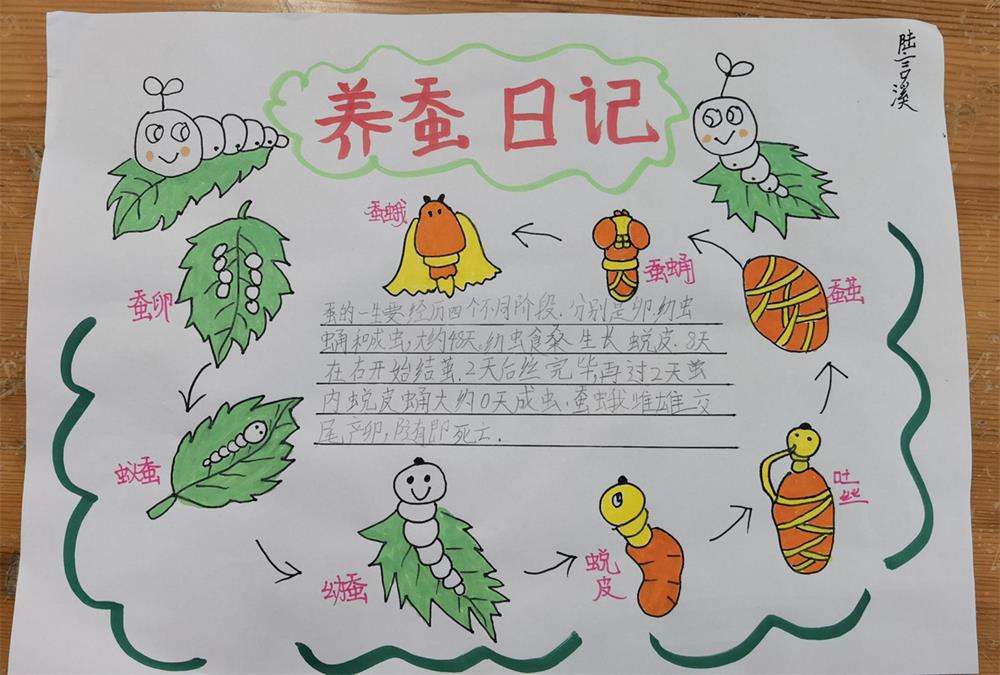 养蚕日记
陆言溪
蚕蛾
蚕蛹
蚕茧
蚕卵
蚕的一生要经历四个不同阶段.分别是卵.幼虫
蛹和成虫,大约48天.幼虫食桑 生长 蜕皮.8天
在右开始结茧.2天后结完毕,再过2天茧
内蜕皮蛹大约0天成虫.蚕蛾雌雄交
尾产卵,随即死亡.
蚁蚕
幼蚕
蜕皮
吐丝